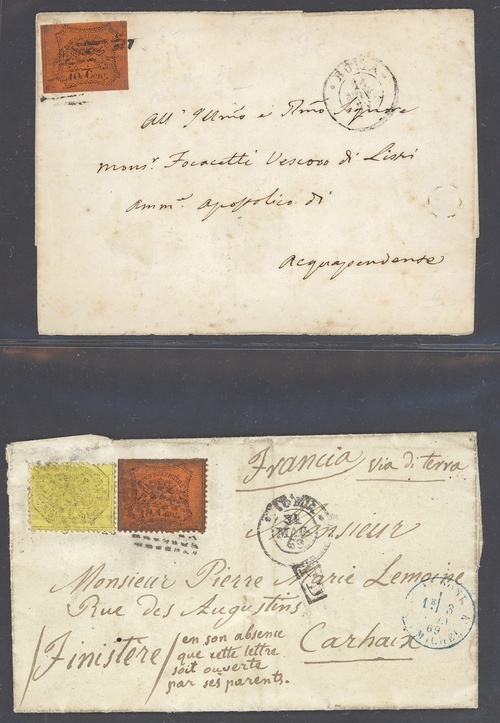 10 Cent.
ROMA
All' Illmo e Rmo Signore
Monsr Focacetti Vescovo di Listri
Ammre Apostolico di
Acquapendente
Francia via di terra
10 Cent.
ROMA
31
MAG
69
Monsieur
Monsieur Pierre Marie Lemoine
Rue des Augustins
Carhaix
/Finistère/
en son absence
que cette lettre
soit ouverte
par ses parents.
69
MICHEL